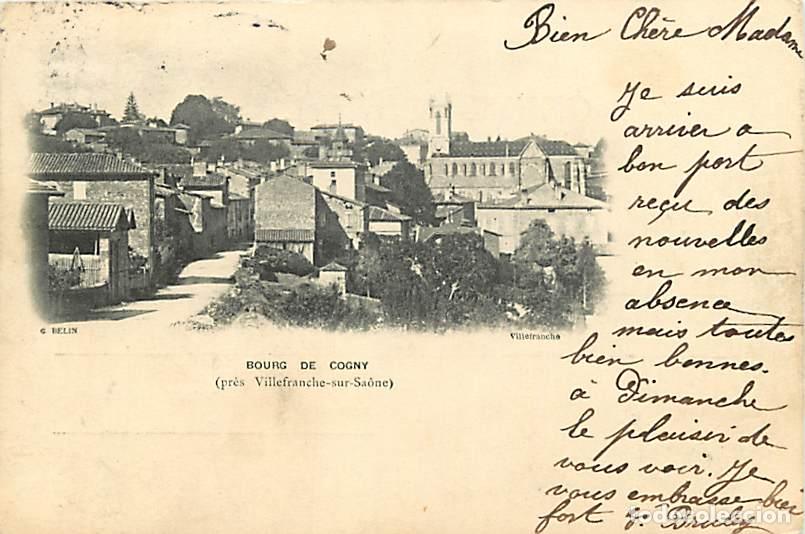 Bien Chère Madame
Je suis
arriver a
bon port
reçu des
nouvelles
en mon
absence
mais toutes
bien bonnes.
à Dimanche
le plaisir de
vous voir. Je
vous embrasse bien
fort
G BELIN
Villefranche
BOURG DE COGNY
(près Villefranche-sur-Saône)
todocoleccion